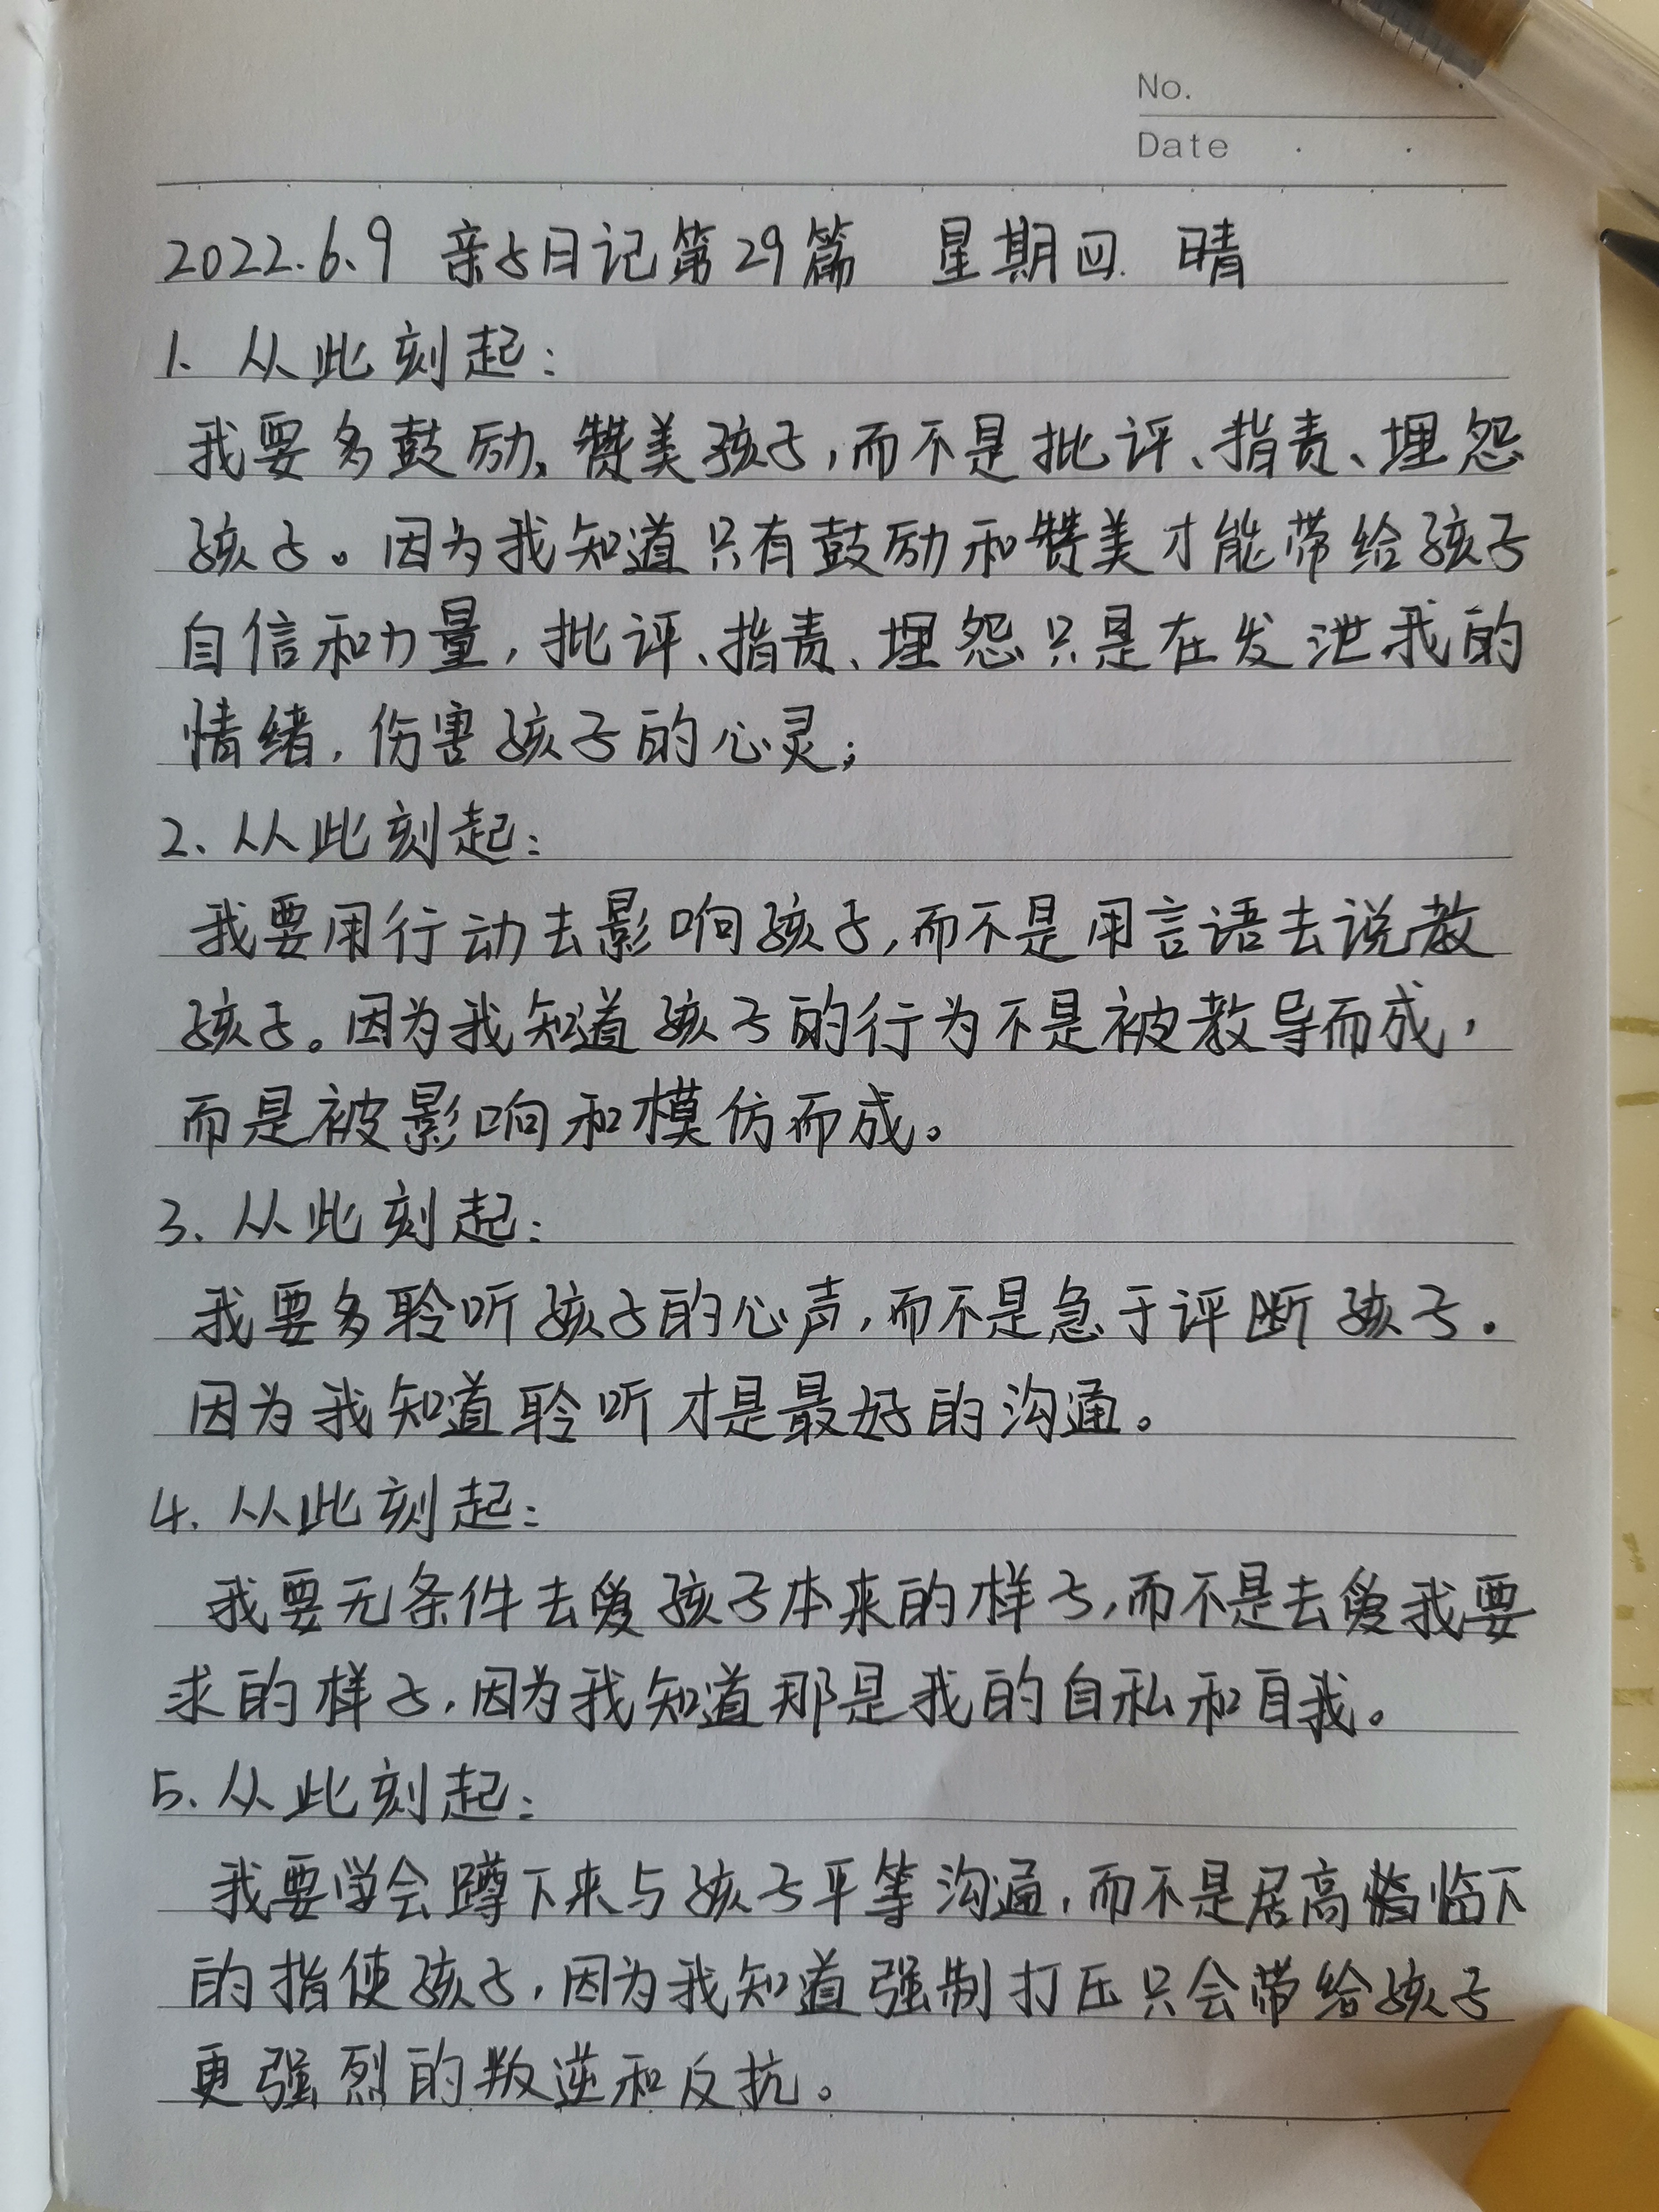 No.
Date
2022.6.9 亲子日记第29篇 星期四 晴
1. 从此刻起:
我要多鼓励、赞美孩子,而不是批评、指责、埋怨
孩子。因为我知道只有鼓励和赞美才能带给孩子
自信和力量,批评、指责、埋怨只是在发泄我的
情绪,伤害孩子的心灵;
2. 从此刻起:
我要用行动去影响孩子,而不是用言语去说教
孩子。因为我知道孩子的行为不是被教导而成,
而是被影响和模仿而成。
3. 从此刻起:
我要多聆听孩子的心声,而不是急于评断孩子.
因为我知道聆听才是最好的沟通。
4. 从此刻起:
我要无条件去爱孩子本来的样子,而不是去爱我要
求的样子,因为我知道那是我的自私和自我。
5. 从此刻起:
我要学会蹲下来与孩子平等沟通,而不是居高临下
的指使孩子,因为我知道强制打压只会带给孩子
更强烈的叛逆和反抗。